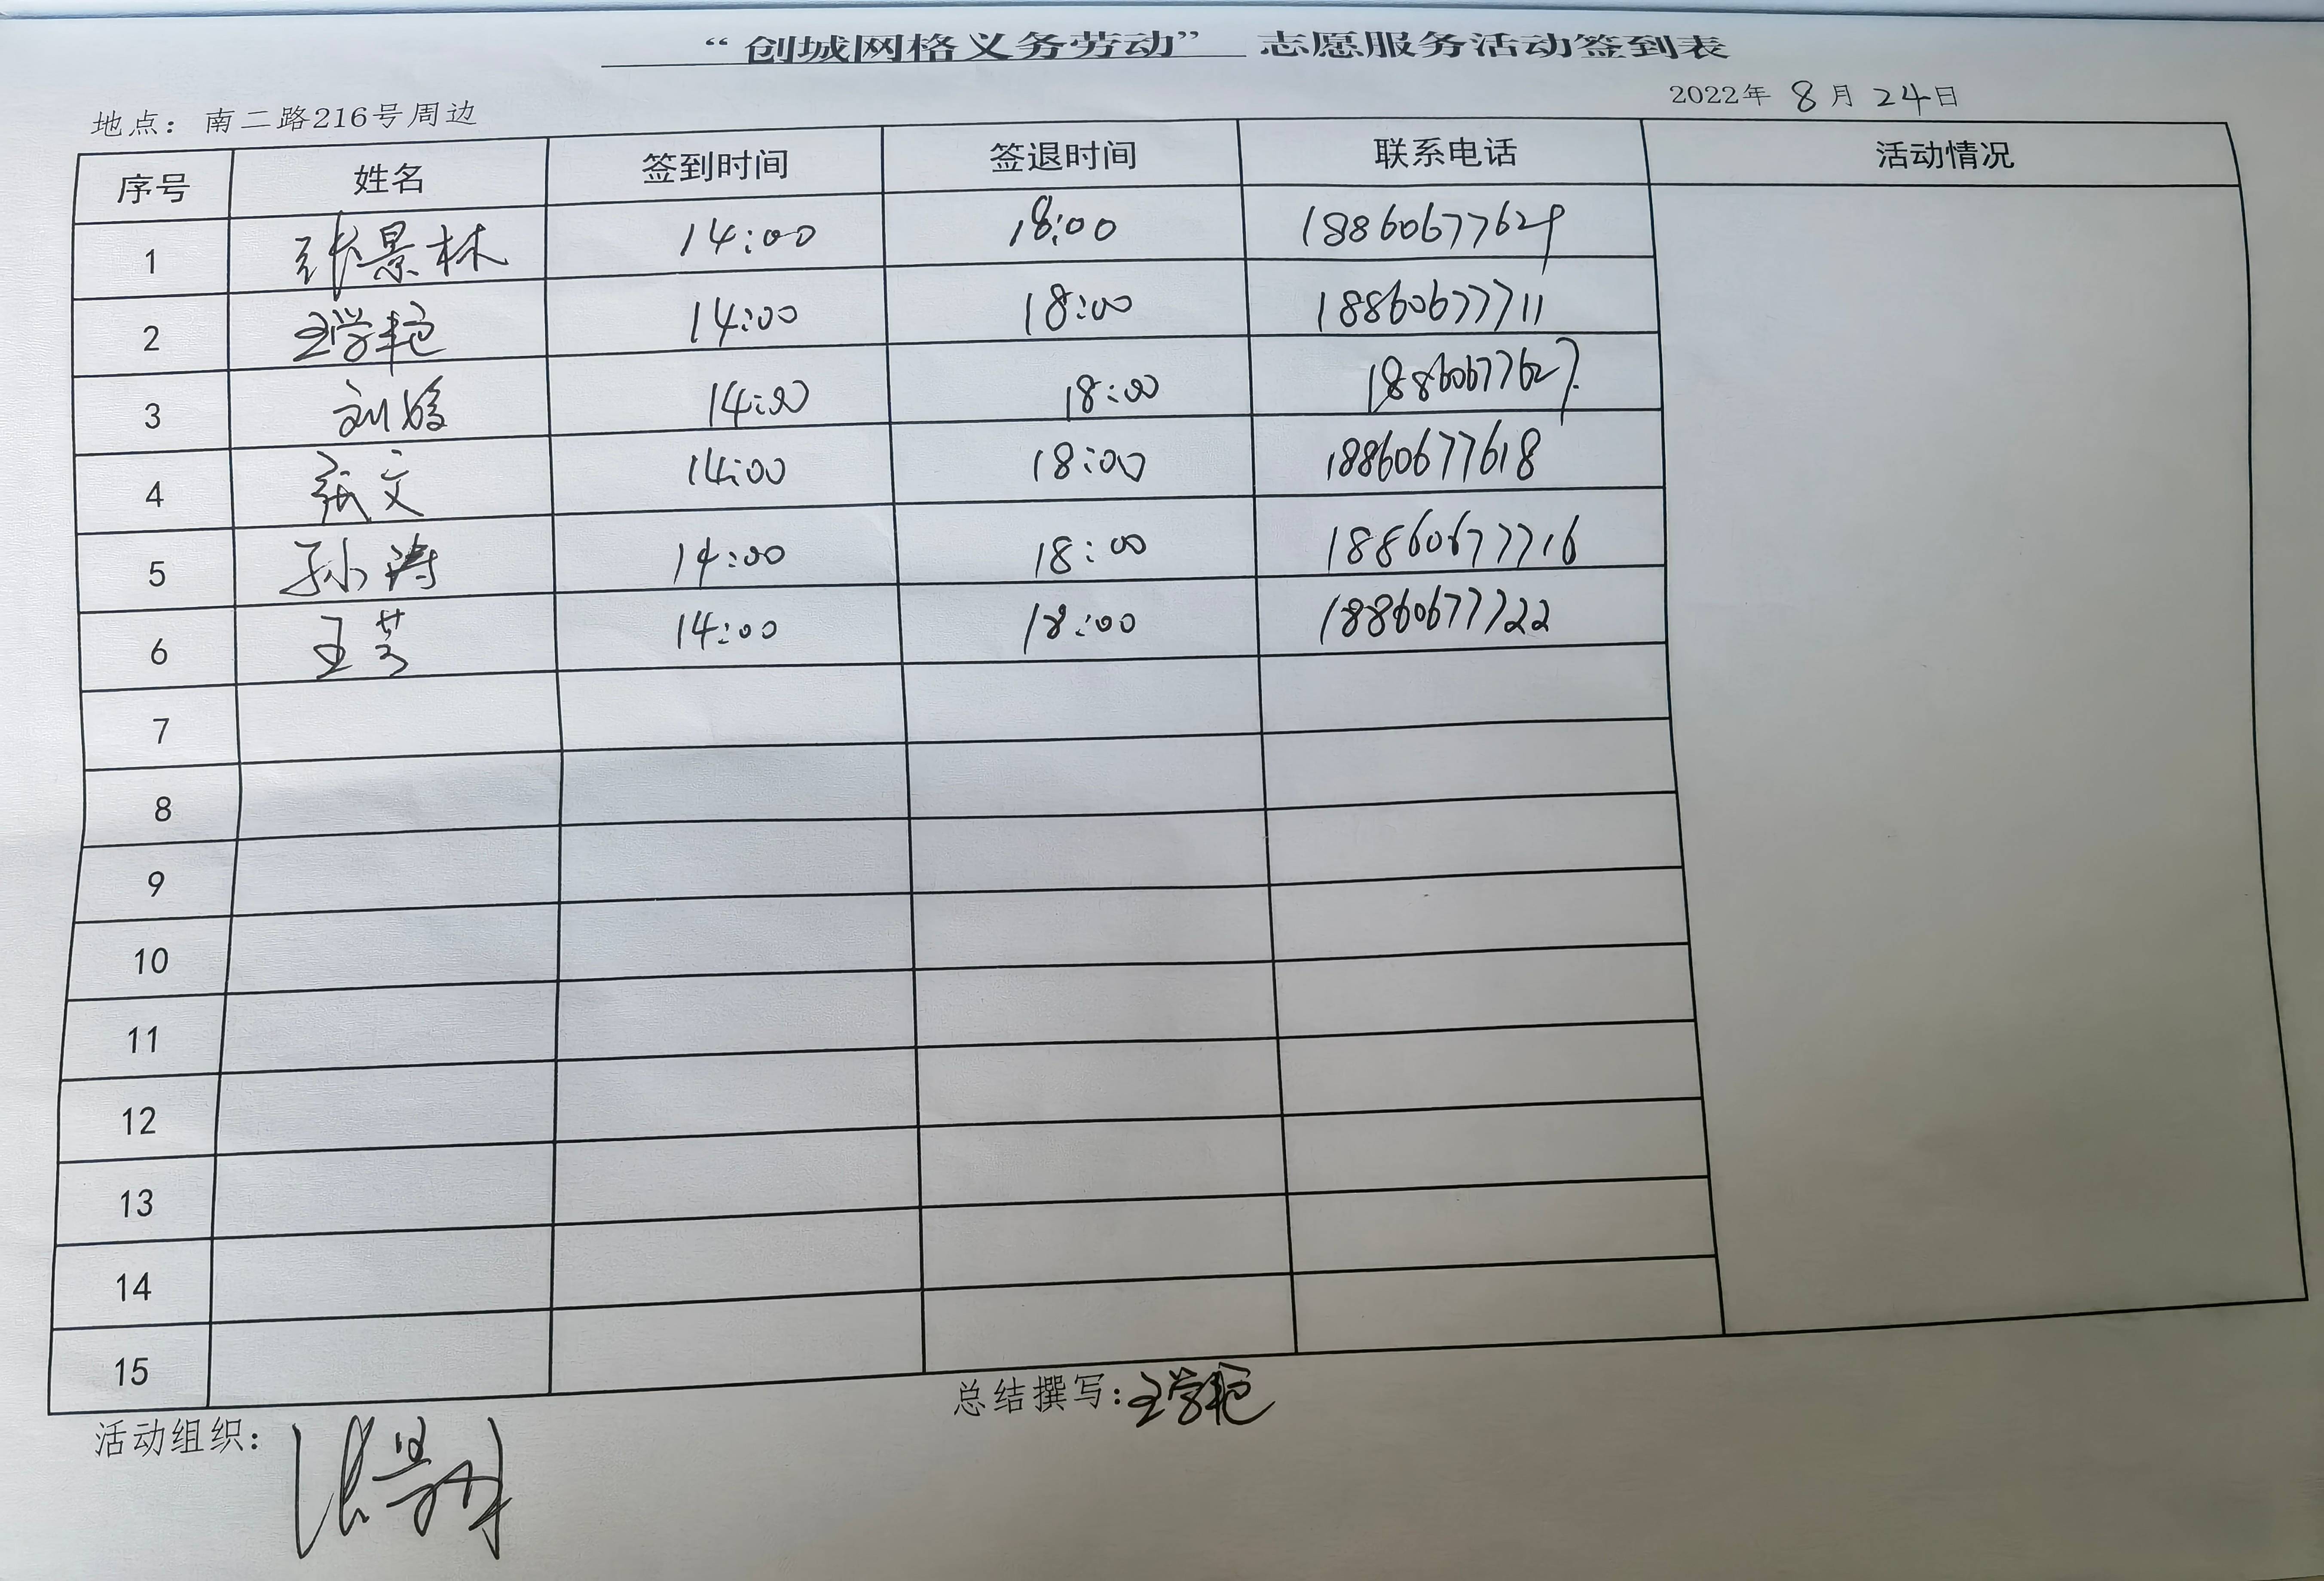 “创城网格义务劳动” 志愿服务活动签到表
地点：南二路216号周边 2022年 8 月 24 日
序号 姓名 签到时间 签退时间 联系电话 活动情况
1 张景林 14:00 18:00 18860677629
2 王学艳 14:00 18:00 18860677711
3 刘 14:00 18:00 18860677627
4 张文 14:00 18:00 18860677618
5 孙涛 14:00 18:00 18860677716
6 王芳 14:00 18:00 18860677722
7
8
9
10
11
12
13
14
15
活动组织：张景林 总结撰写：王学艳